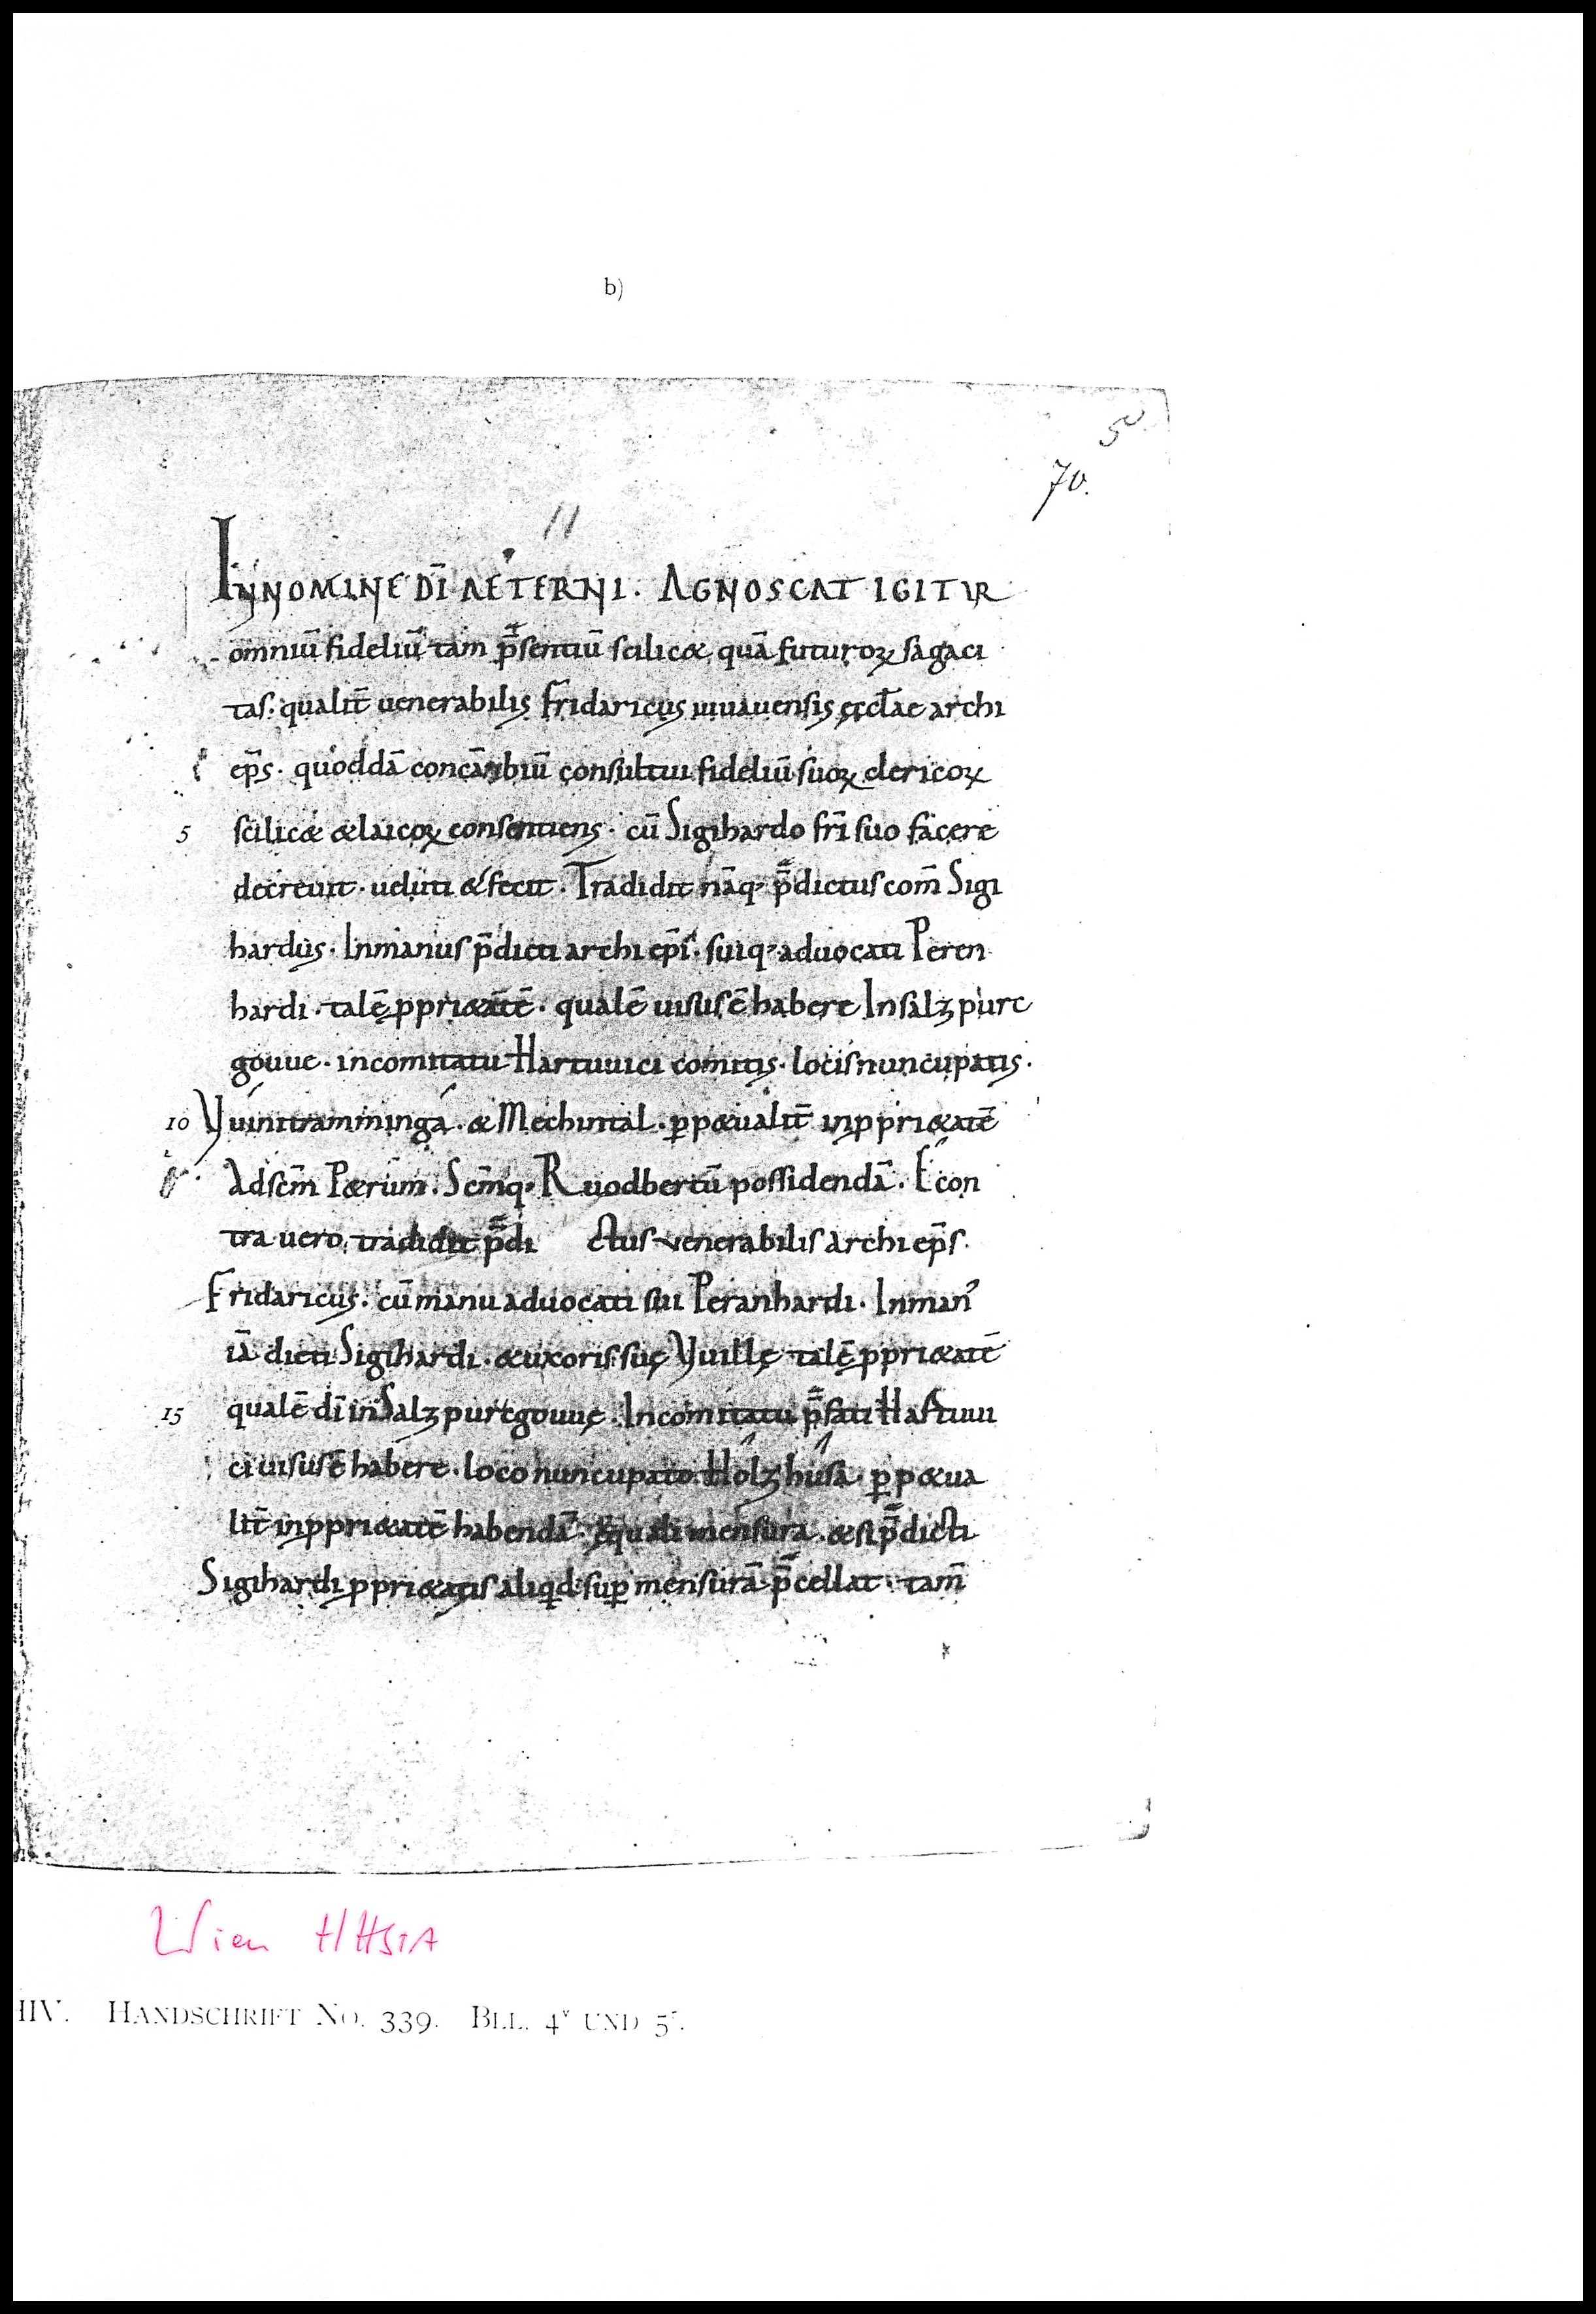 b)
5
70.
11
INNOMINE DI̅ AETERNI. AGNOSCAT IGITUR
omniū fideliū tam p̄sentiū scilic& quā futuroꝝ sagaci
tas. qualit̄ uenerabilis Fridaricus iuuauensis ęccl̄ae archi
ep̄s. quoddā concābiū consultui fideliū suoꝝ clericoꝝ
5 scilic& &laicoꝝ consentiens. cū Sigihardo fr̄i suo facere
decreuit. ueluti & fecit. Tradidit nāq; p̄dictus com̄ Sigi
hardus. Inmanus p̄dicti archi ep̄i. suiq; aduocati Peren
hardi. talē ꝓpri&atē. qualē uisus ē habere Insalzpurc
gouue. incomitatu Hartuuici comitis. locis nuncupatis.
10 Vuinitramminga. & Mechintal. ꝑp&ualit̄ inꝓpri&atē
Adsc̄m P&rum. Sc̄mq; Ruodbertū possidendā. Econ
tra uero tradidit p̄di ctus venerabilis archi ep̄s.
Fridaricus. cū manu aduocati sui Peranhardi. Inman᾽
iā dicti Sigihardi. &uxoris suę Vuillę talē ꝓpri&atē
15 qualē di̅ inSalzpurtgouuę. Incomitatu p̄fati Hartuui
ci uisus ē habere. loco nuncupato Holzhusa. ꝑp&ua
lit̄ inꝓpri&atē habendā. ęquali mensura. &si p̄dicti
Sigihardi ꝓpri&atis aliqd sup̄ mensurā p̄cellat. tam̄
Wien HHStA
HIV. HANDSCHRIFT NO. 339. BLL. 4v UND 5r.